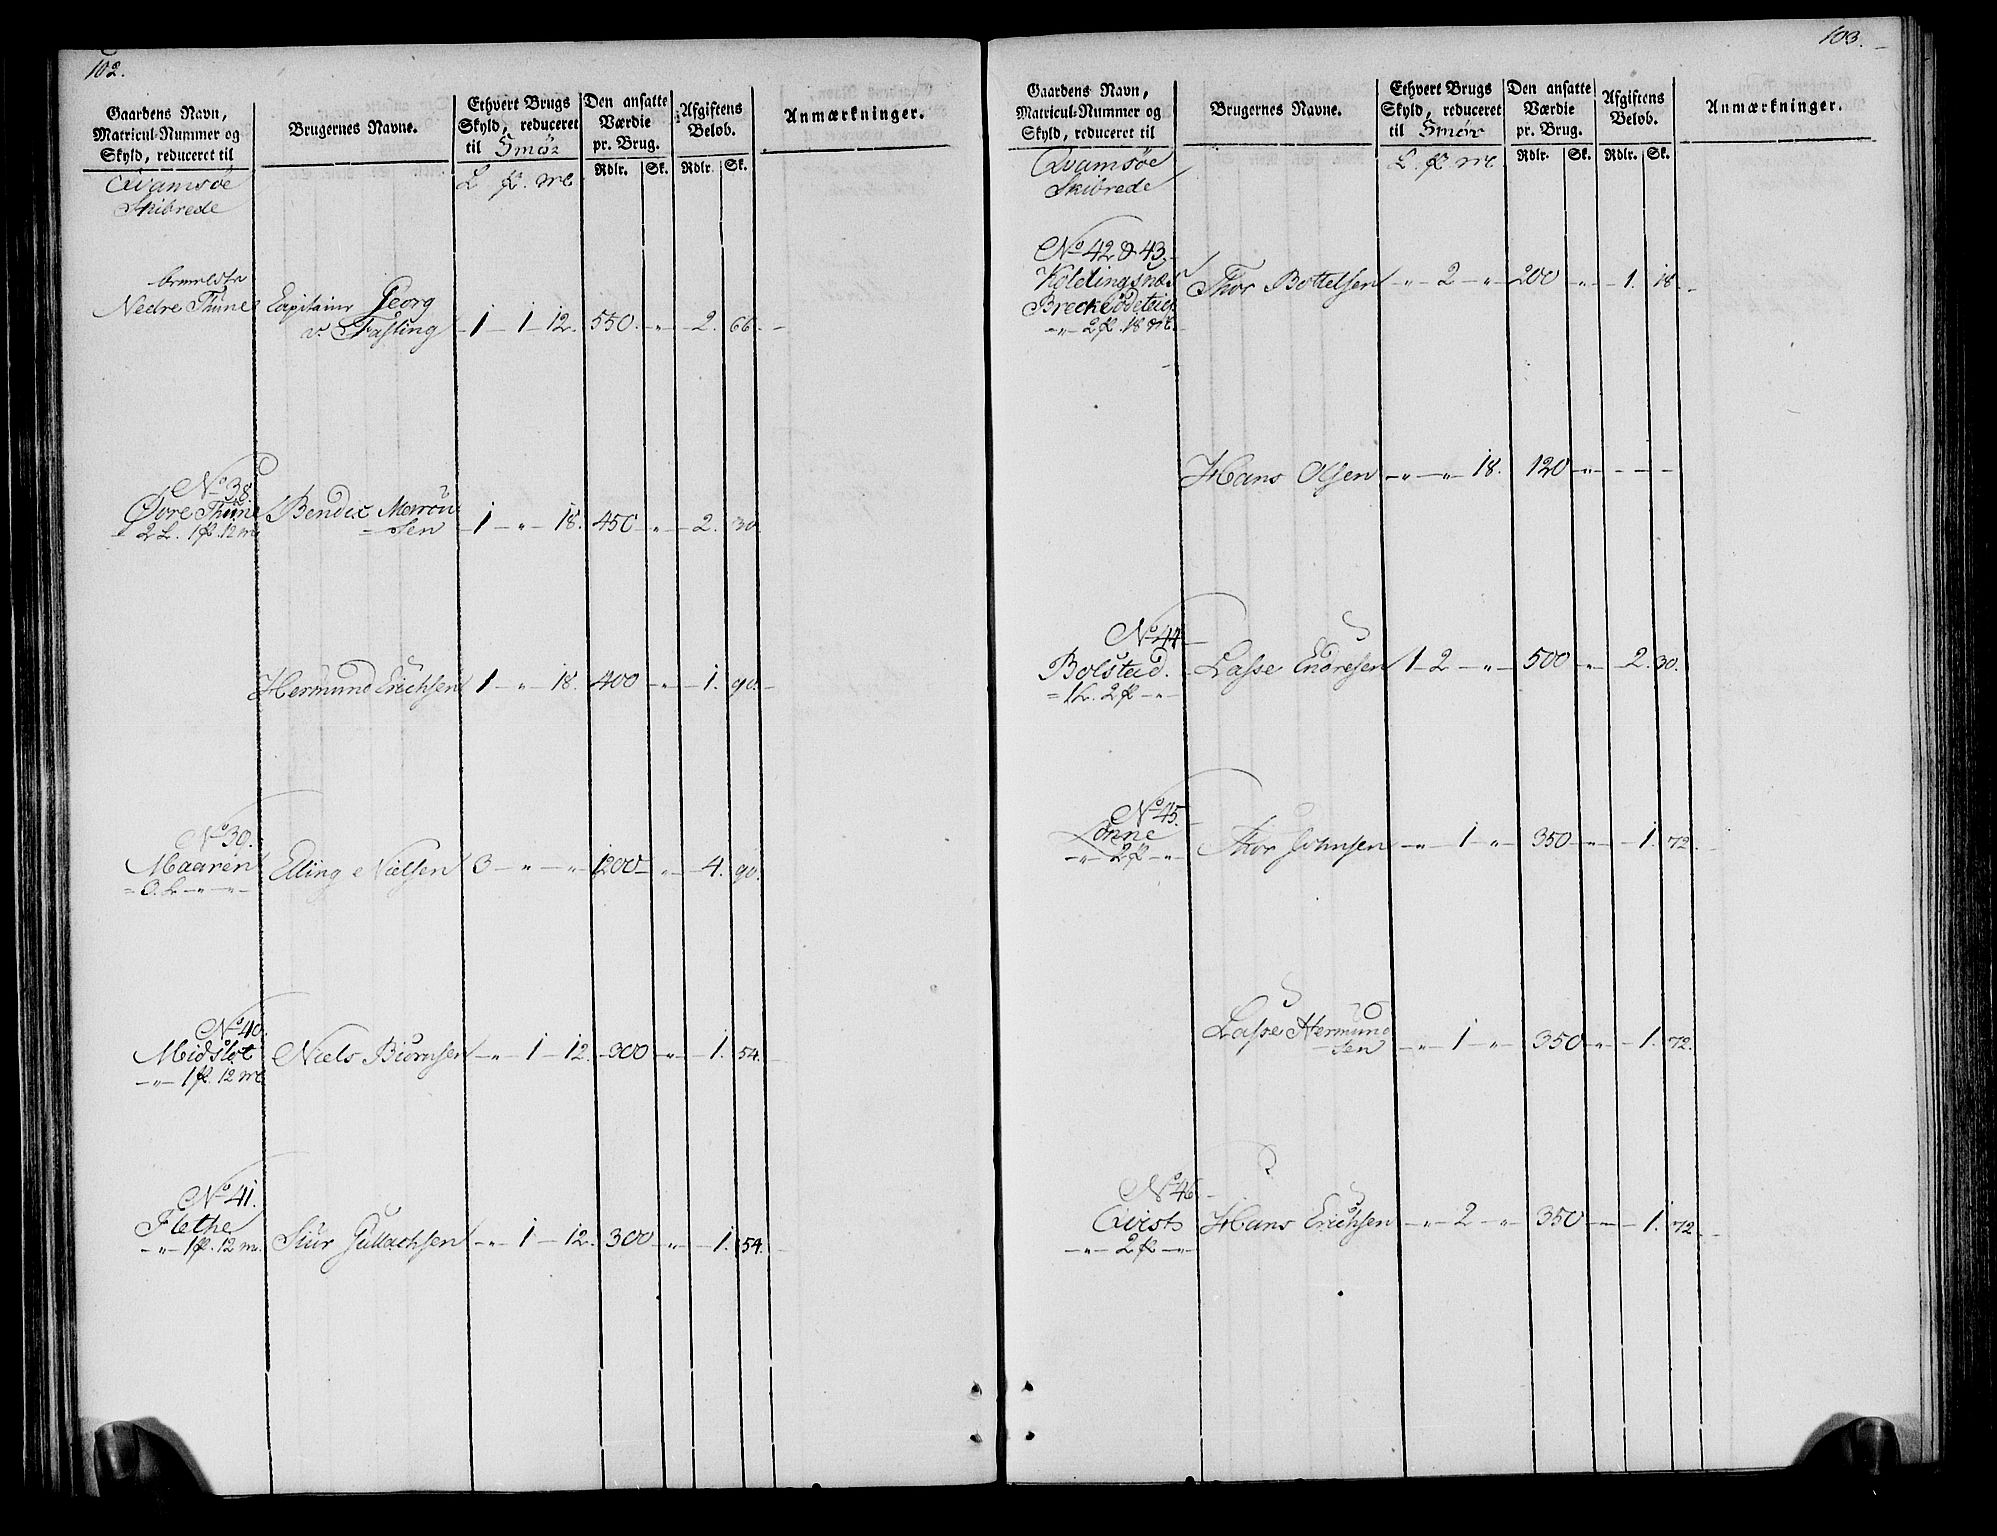 102.
Gaardens Navn,
Matricul-Nummer og
Skyld, reduceret til
Brugernes Navne.
Ethvert Brugs
Skyld, reduceret
til Smör
Den ansatte
Værdie
pr. Brug.
Rdlr. Sk.
Afgiftens
Beløb.
Rdlr. Sk.
Anmærkninger.
Qvamsøe
Skibrede
L. ℔. mk
Nedre Thune Capitaine Georg
v. Fasting - 1 - 1 - 12. 550 - „ - 2. 66. -
No 38.
Øvre Thune Bendix
2 L. 1 ℔. 12 mk - sen - 1 - „ - 18. 450 - „ - 2. 30.
Hermund Erichsen 1 - „ - 18. 400 - „ - 1. 90. -
No 39.
Maaren Elling Nielsen 3 - „ - „ 1200 - „ - 4. 90.
= 3. L - „ - „ -
No 40.
Midslot Niels Biörnsen - „ - 1 - 12. - 300 - „ - 1. 54.
- „ - 1 ℔. 12 mk
No 41.
Flethe Siur Gullachsen - „ - 1 - 12. - 300 - „ - 1. 54. -
- „ - 1 ℔. 12 mk
103. -
Gaardens Navn,
Matricul-Nummer og
Skyld, reduceret til
Brugernes Navne.
Ethvert Brugs
Skyld, reduceret
til Smör
Den ansatte
Værdie
pr. Brug.
Rdlr. Sk.
Afgiftens
Beløb.
Rdlr. Sk.
Anmærkninger.
Qvamsøe
Skibrede
L. ℔ mk
No 42 & 43. -
Koldingsnæs Thor Bottelsen - „ - 2 - „ - 200 - „ - 1. 18. -
- „ - 2 ℔. 18 mk. -
Hans Olsen - „ - „ - 18. 120 - „ - - - -
No 44 -
Bolstad. - Lasse Endresen 1 - 2 - „ - 500 - „ - 2. 30.
= 1 L. 2 ℔ - „ -
No 45. -
Lönne Thor Johnsen - „ - 1 - „ - 350 - „ - 1. 72. -
- „ - 2 ℔ - „ -
Lasse Hermund
- sen - „ - 1 - „ - 350 - „ - 1. 72.
No 46 -
Qvist Hans Erichsen - „ - 2 - „ - 350 - „ - 1. 72 -
- „ - 2 ℔ - „ -